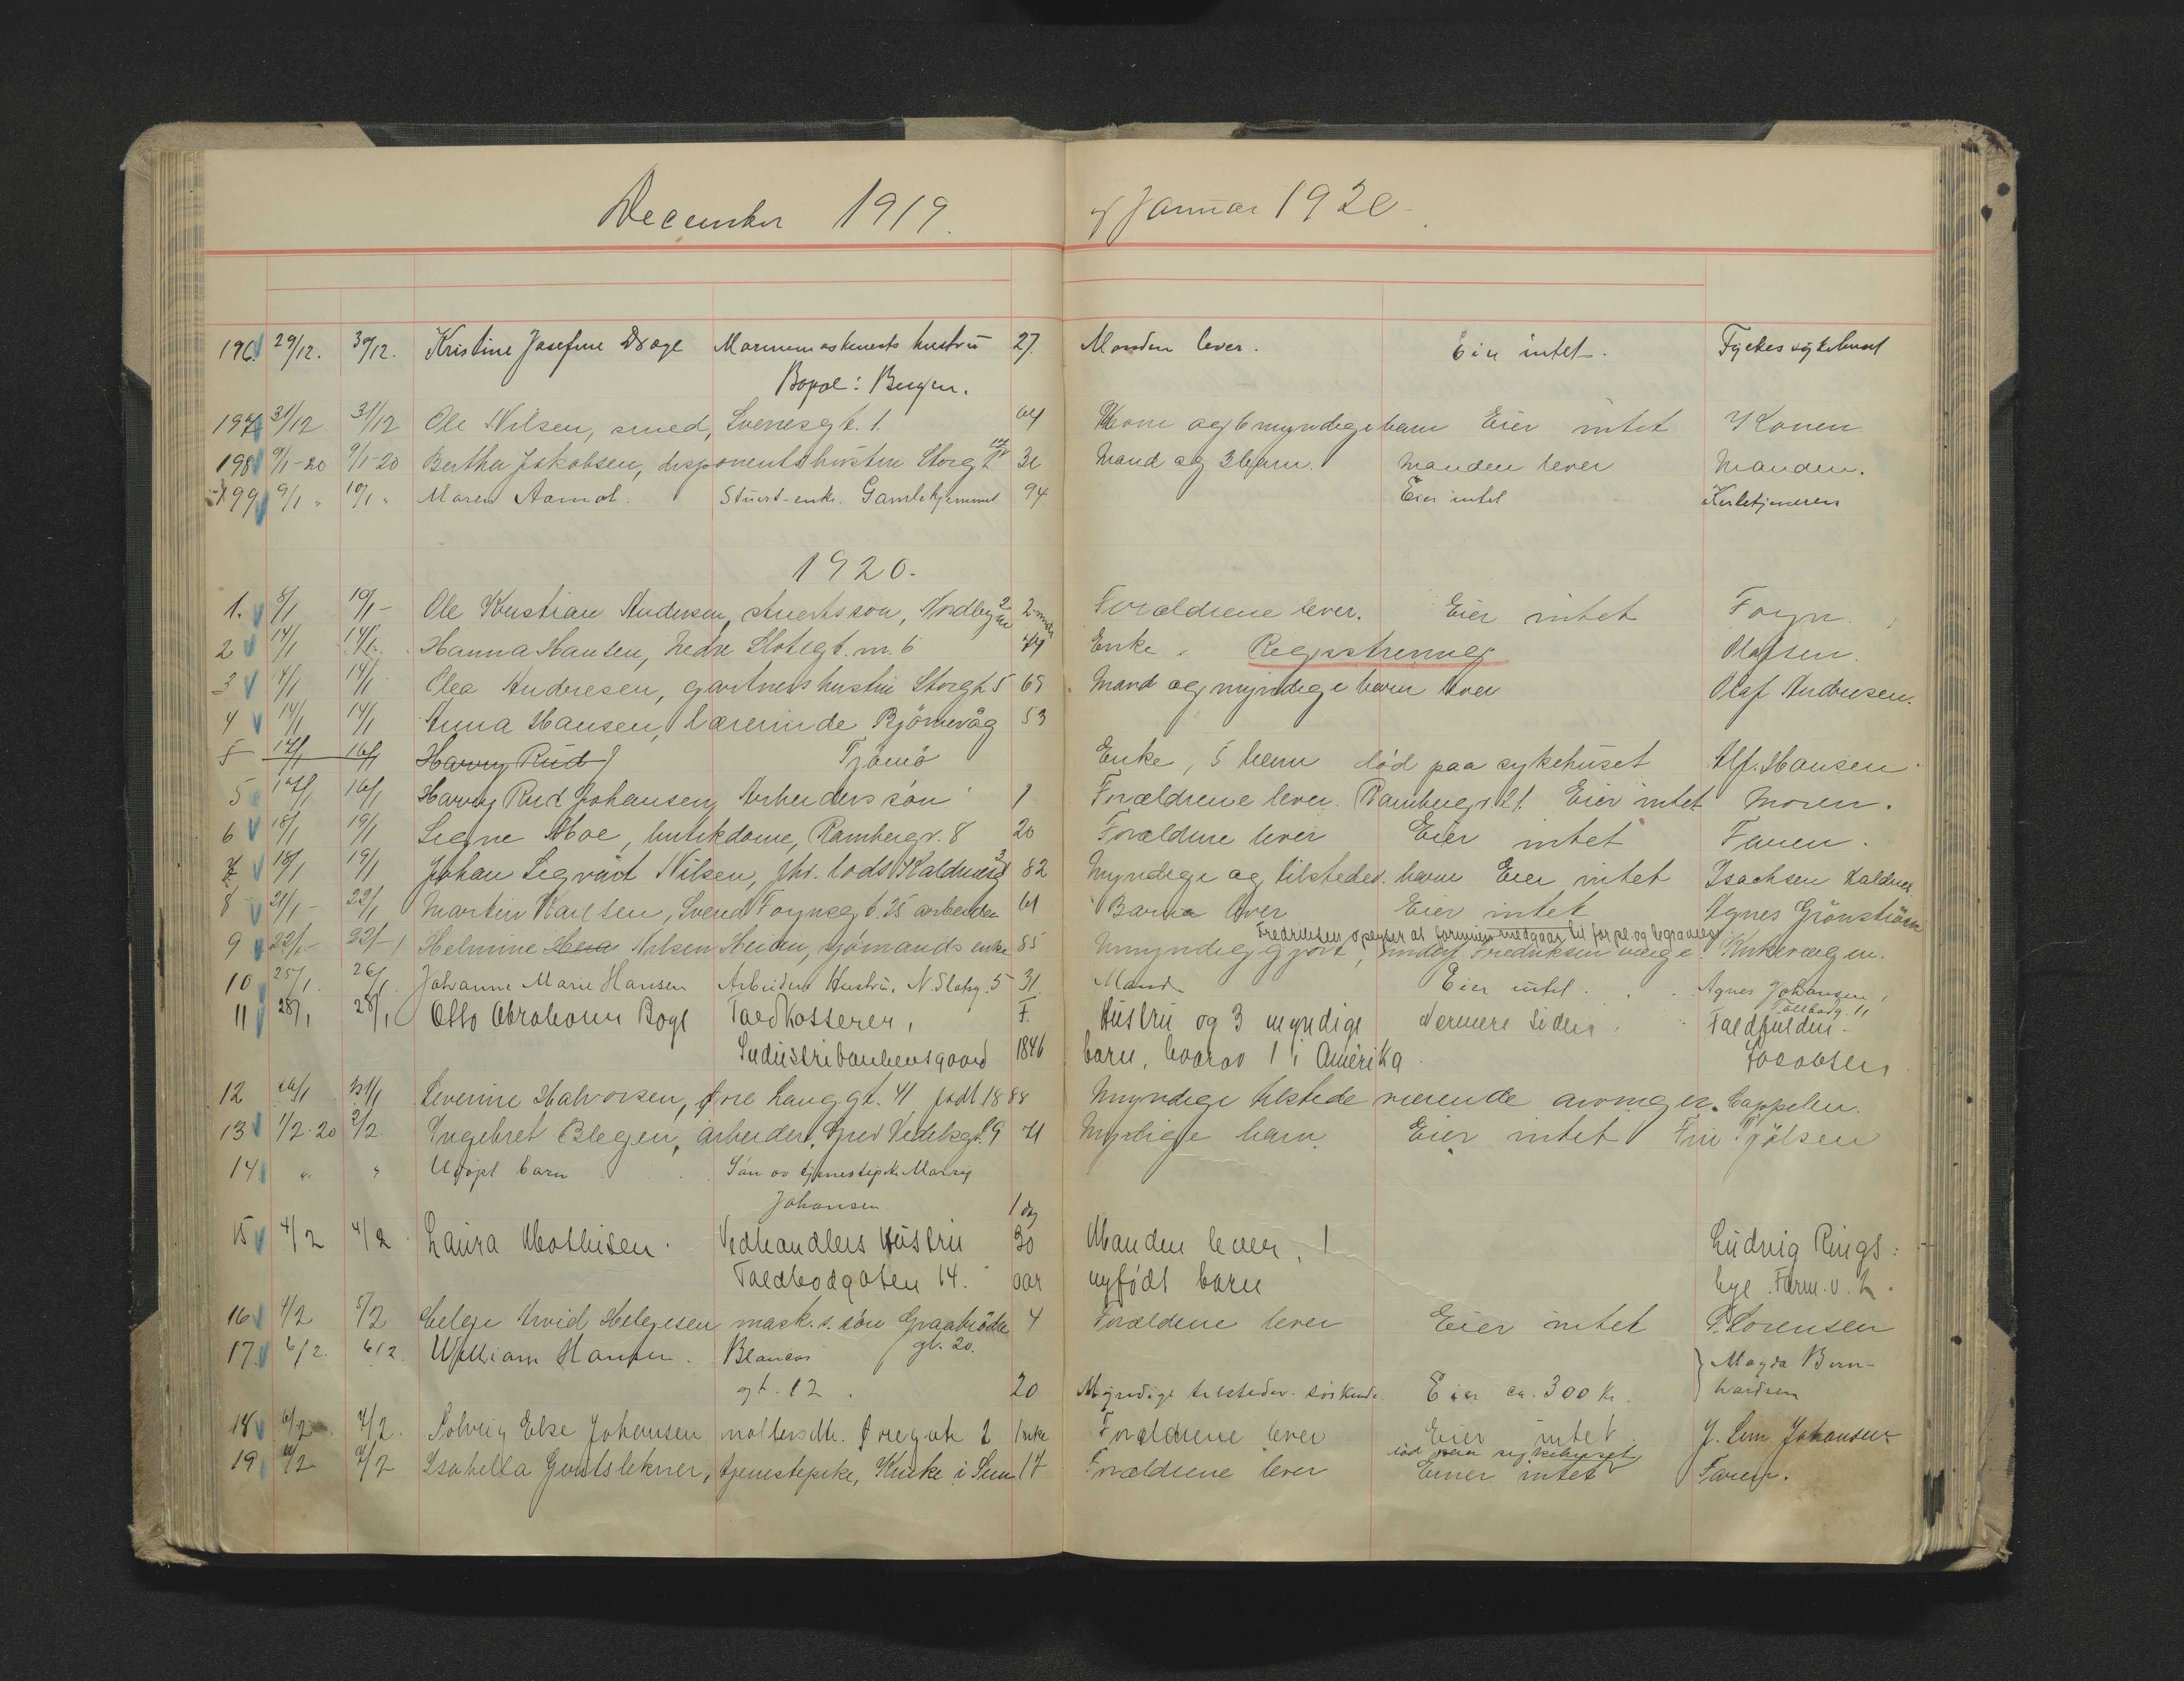 December 1919.
Januar 1920
196. 29/12. 30/12. Kristine Josefine Marinemaskinists hustru 27. Manden lever. Eier intet. Fylkessykehuset
Bopæl: Bergen.
197 31/12 31/12 Ole Nilsen, smed, Svenesgt. 1. 64 Kone og 6 myndige barn Eier intet Konen
198 9/1-20 9/1-20 Bertha Jakobsen, disponents hustru Storgt Mand og 3 barn. Manden lever Manden.
199 9/1 " 10/1 " Maren Aamot. Stuert-enke. Gamlehjemmet 94 Eier intet Kirketjeneren
1920.
1. 8/1 10/1 - Ole Kristian Andersen, stuertsson, Nordbyen 2 mdr Forældrene lever. Eier intet Foyn.
2 14/1 14/1 Hanna Hansen, Nedre Slotsgt. nr. 6 Enke. Registrering Olafsen.
3 14/1 14/1 Olea Andresen, gartners hustru Storgt 5 69 Mand og myndige barn lever Olaf Andresen.
4 14/1 14/1 Anna Hansen, lærerinde Bjørnevåg 53
5 14/1 16/1 Harry Rud Tjømø Enke, 5 barn død paa sykehuset Alf. Hansen
5 14/1 16/1 Harry Rud Johansen, Arbeiders søn 1 Forældrene lever. Rambergv. 21. Eier intet Moren.
6 18/1 19/1 Signe Moe, butikdame, Rambergv. 8 20 Forældrene lever Eier intet Faren.
7 18/1 19/1 Johan Sigvart Nilsen, fhv. lods Kaldnæs 82 Myndige og tilstedev. barn Eier intet Isachsen Kaldnes
8 21/1 - 22/1 Martin Karlsen, Svend Foynsgt. 25 arbeider 61 Barna lever Eier intet Agnes Grönström
Fredriksen opgiver at formuen medgaar til forpl. og begravelse
9 22/1 - 22/1 Helmine Nilsen Heian, sjömands enke 85 Umyndiggjort, Fredriksen verge. Kirkevergen.
10 25/1. 26/1. Johanne Marie Hansen Arbeiders Hustru. N. Slotsg. 5 31. Mand Eier intet. Agnes Johansen,
Tollbodg. 11
11 28/1 28/1 Otto Abraham Boge Toldkasserer, F. Hustru og 3 myndige Nærmere siden. Toldfuldm.
Industribankensgaard 1846 barn, hvorav 1 i Amerika Jacobsen
12 Severine Halvorsen, Øvre Langgt. 41 født 1888 Myndige tilstedeværende arvinger. Cappelen.
13 1/2-20 2/2 Ingebret Blegen, arbeider, Grev Vedelsgt. 9 71 Myndige barn Eier intet Fru Tjølsen
14 " " Udøpt barn Søn av tjenestepike Marry
Johansen 1 dag
15 4/2 4/2 Laura Mathisen. Vedhandlers Hustru 30 Manden lever, 1 Ludvig Rings:
Toldbodgaten 14. aar nyfödt barn bye. Farm. v. 2.
16 4/2 5/2 Helge Arvid Helgesen mask. s. søn Graabrødre 4 Forældrene lever Eier intet P. Lorensen
gt. 20.
17. 6/2. 6/2. William Hansen. Blancas Magda Bern-
gt. 12. 20 Myndige tilstedev. söskende Eier ca. 300 kr. hardsen
18 6/2 7/2. Solveig Else Johansen Øvregate 2 1 uke Forældrene lever Eier intet. J. Johansen
død paa sykehuset
19. 7/2 Isabella tjenestepike, Kirke i Sem 17 Forældrene lever Eier intet Faren.